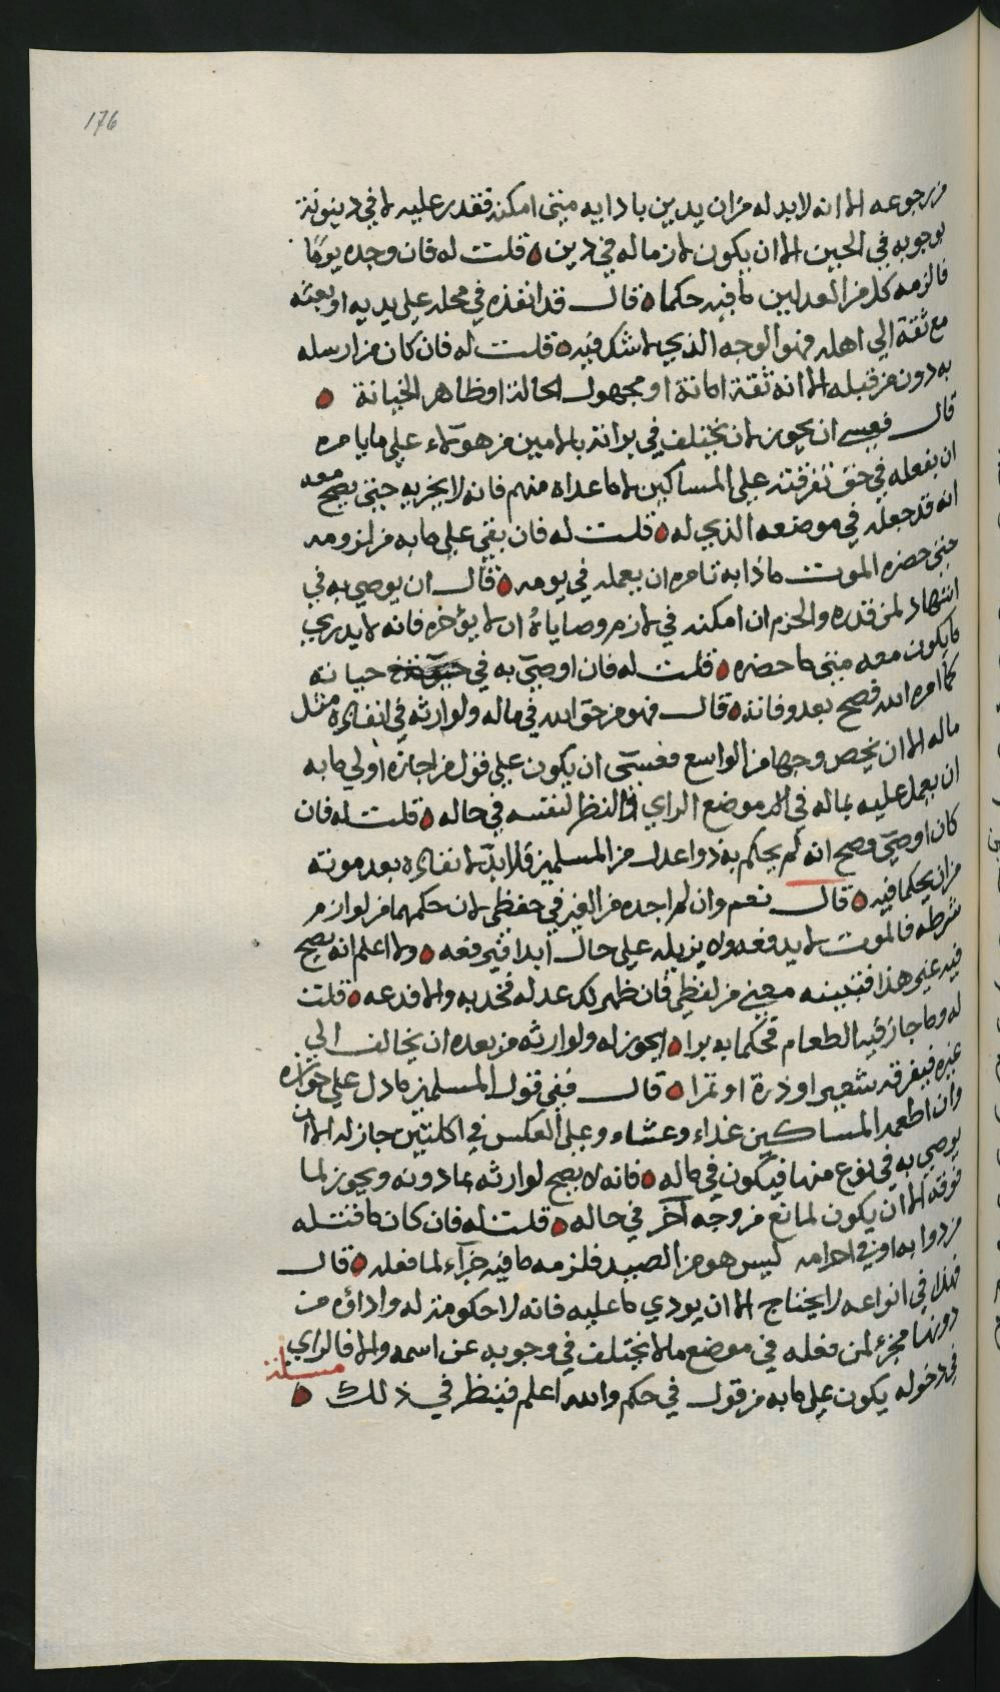 176
من رجوعه الا انه لا بد له من ان يدين بادايه متى امكنه فقدر عليه لا في دينونة
بوجوبه في الحين الا ان يكون لازما له في دين قلت له فان وجده يوما
فالزمه كل من العدلين ما فيه حكما قال قد انفذه في محله على يديه او بعثه
مع ثقة الى اهله فهو الوجه الذي لا شك فيه قلت له فان كان من ارسله
به دون من قبله الا انه ثقة امانة او مجهول الحالة او ظاهر الخيانة
قال فعسى ان يجوز لان يختلف في براته بالامين من هولاء على ما يامره
ان يفعله في حق تفرقته على المساكين لا ما عداه منهم فانه لا يجزيه حتى يصح معه
انه قد جعله في موضعه الذي له قلت له فان بقي على ما به من لزومه
حتى حضره الموت ماذا به تامره ان يعمله في يومه قال ان يوصي به في
اشهاد لمن قدره والحزم ان امكنه في لازم وصاياه ان لا يؤخره فانه لا يدري
ما يكون معه متى ما حضره قلت له فان اوصى به في حياته
كما امره الله فصح بعد وفاته قال فهو من حق الله في ماله ولوارثه في انفاذه مثل
ماله الا ان يخص وجها من الواسع فعسى ان يكون على قول من اجازه اولى ما به
ان يعمل عليه بماله في الا موضع الراي والنظر لنفسه في حاله قلت له فان
كان اوصى وصح انه لم يحكم به ذوا عدل من المسلمين فلا بد لانفاذه بعد موته
من ان يحكما فيه قال نعم وان لم اجده من الغير في حفظي لان حكمهما من لوازم
شرطه فالموت لا يدفعه ولا يزيله على حال ابدا فيرفعه ولا اعلم انه يصح
فيه غير هذا فتبينه معنى من لفظي فان ظهر لك عدله فخذ به والا فدعه قلت
له وما جاز فيه الطعام فحكما به برا ايجوز له ولوارثه من بعده ان يخالف الى
غيره فيفرقه شعيرا وذرة او تمرا قال ففي قول المسلمين ما دل على جوازه
وان اطعمه المساكين غداء وعشاء وعلى العكس في اكلتين جاز له الا ان
يوصي به في نوع منها فيكون في ماله فانه لا يصح لوارثه بما دونه ويجوز لما
فوقه الا ان يكون لمانع من وجه آخر في حاله قلت له فان كان ما قتله
من دوابه او في احرامه ليس هو من الصيد فلزمه ما فيه جزاء لما فعله قال
فهذا في انواعه لا يحتاج الا ان يودي ما عليه فانه لا حكومة له واداؤه من
دونها مجزء لمن فعله في موضع ما لا يختلف في وجوبه عن اسمه والا فالراي
في دخوله يكون على ما به من قول في حكم والله اعلم فينظر في ذلك مسئلة